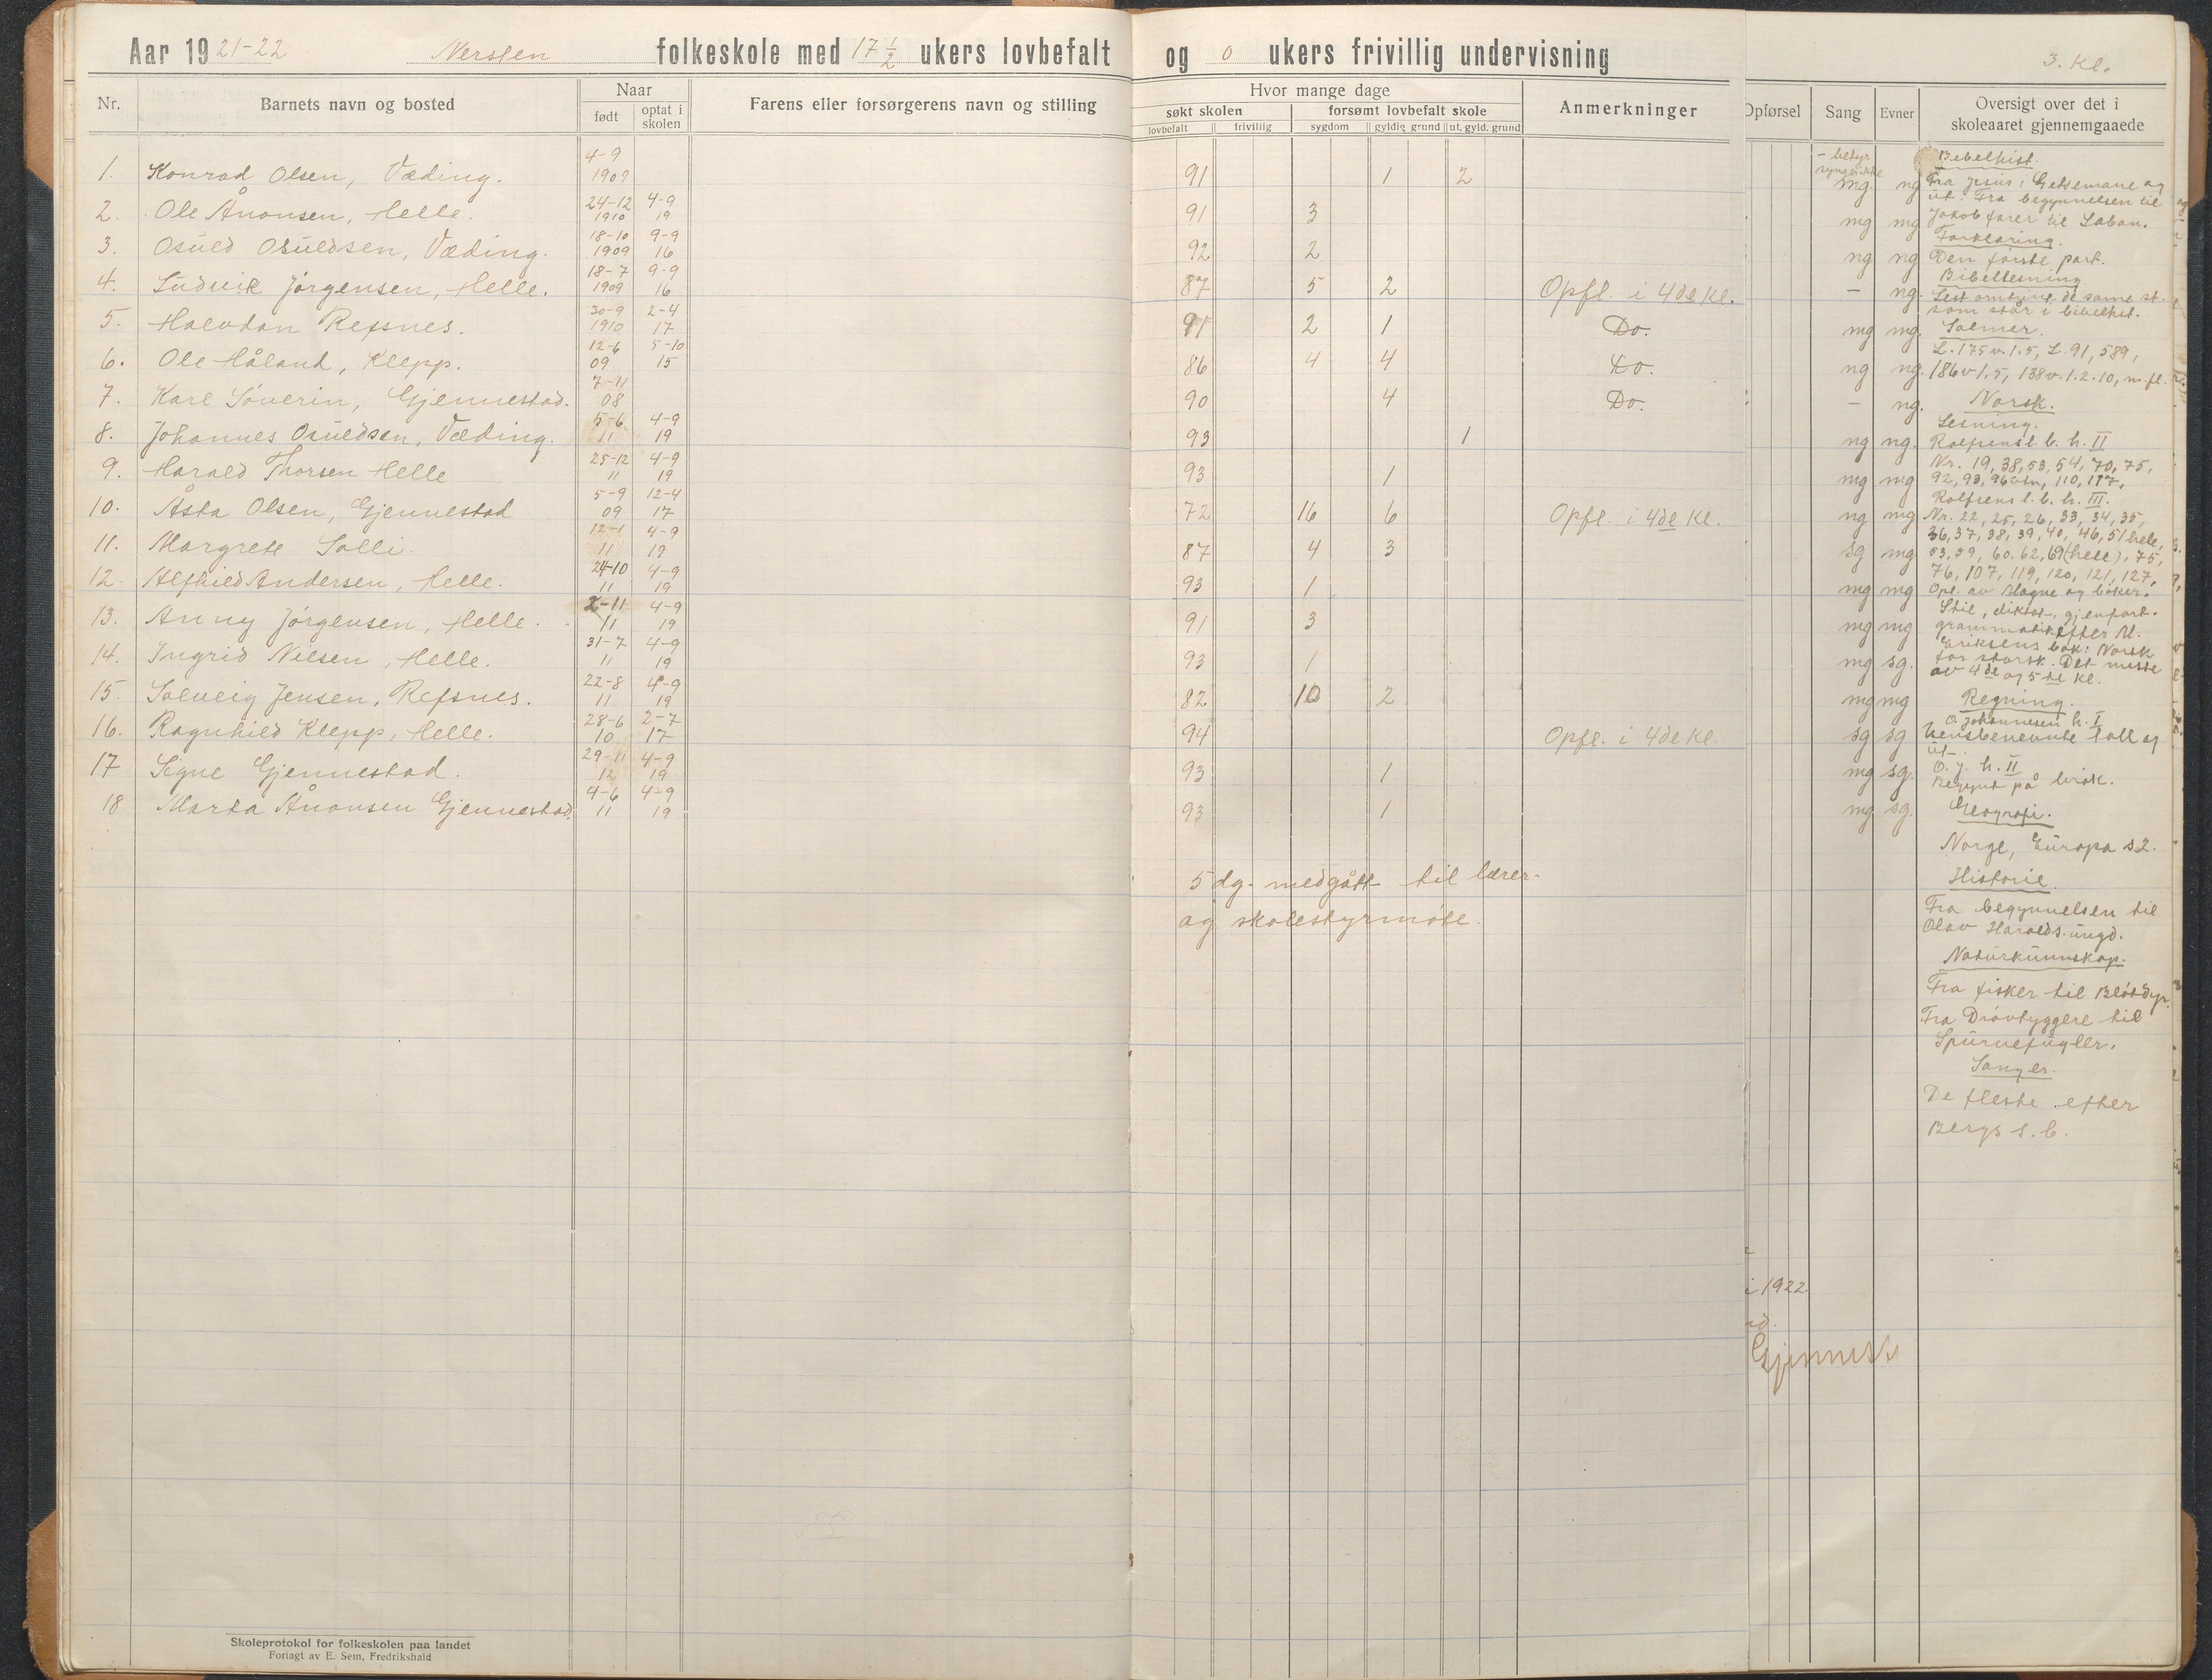 Aar 1921-22 Nersten folkeskole med 17 1/2 ukers lovbefalt og 0 ukers frivillig undervisning
3. kl.
Nr. Barnets navn og bosted Naar Farens eller forsørgerens navn og stilling Hvor mange dage Anmerkninger Opførsel Sang Evner Oversigt over det i
skoleaaret gjennemgaaede
født optat i skolen søkt skolen forsømt lovbefalt skole
lovbefalt frivillig sygdom gyldig grund ut. gyld. grund
- betyr
synger ikke
1. Konrad Olsen, Væding. 4-9 1909 91 1 2 mg ng
2. Ole Ånonsen, Helle. 24-12 1910 4-9 19 91 3 mg mg
3. Osuld Osuldsen, Væding. 18-10 1909 9-9 16 92 2 ng ng
4. Ludvik Jørgensen, Helle. 18-7 1909 9-9 16 87 5 2 Opfl. i 4de kl. - ng.
5. Halvdan Refsnes. 30-9 1910 2-4 17 91 2 1 Do. mg mg.
6. Ole Håland, Klepp. 12-6 09 5-10 15 86 4 4 Do. ng ng.
7. Kare Söverin, Gjennestad. 7-11 08 90 4 Do. - ng.
8. Johannes Osuldsen, Væding. 5-6 11 4-9 19 93 1 ng ng.
9. Harald Thorsen Helle 25-12 11 4-9 19 93 1 mg mg
10. Åsta Olsen, Gjennestad 5-9 09 12-4 17 72 16 6 Opfl. i 4de kl. ng mg
11. Margrete Solli. 12-1 11 4-9 19 87 4 3 sg mg
12. Alfhild Andersen, Helle. 24-10 11 4-9 19 93 1 mg mg
13. Anny Jørgensen, Helle. 2-11 11 4-9 19 91 3 mg mg
14. Ingrid Nilsen, Helle. 31-7 11 4-9 19 93 1 mg sg.
15. Solveig Jensen, Refsnes. 22-8 11 4-9 19 82 10 2 mg mg
16. Ragnhild Klepp, Helle. 28-6 10 2-7 17 94 Opfl. i 4de kl. sg sg
17 Signe Gjennestad. 29-11 12 4-9 19 93 1 mg sg.
18 Marta Ånonsen Gjennestad. 4-6 11 4-9 19 93 1 mg sg.
5 dg. medgått til lærer-
og skolestyrmøte.
Bibelhist.
Fra Jesus i Getsemane og
ut. Fra begynnelsen til
Jakob farer til Laban.
Forklaring.
Den første part.
Bibellesning
Lest omtrent de same st.
som står i bibelhist.
Salmer.
L. 175 v. 1.5, L. 91, 589,
186 v 1.5, 138 v. 1.2.10, m. fl.
Norsk.
Lesning.
Rolfsens l. b. h. II
Nr. 19, 38, 53, 54, 70, 75,
92, 93, 96 110, 117,
Rolfsens l. b. h. III.
Nr. 22, 25, 26, 33, 34, 35,
36, 37, 38, 39, 40, 46, 51 hele,
53, 59, 60. 62, 69 (hele), 75,
76, 107, 119, 120, 121, 127,
Opl. av Magne og bøker.
Stil, diktat, gjenfort.
grammatik efter M.
Eriksens bok: Norsk
for storsk. Det meste
av 4de og 5te kl.
Regning.
O. Johannesen h. I
Uensbenevnte tall og
ut.
O. J. h. II
Begynt på brök.
Geografi.
Norge, Europa s2.
Historie.
Fra begynnelsen til
Olav Haralds. ungd.
Naturkunnskap.
Fra fisker til Bløtdyr.
Fra Drøvtyggere til
Spurvefugler.
Sanger.
De fleste efter
Bergs s. b.
i 1922.
Gjennest
Skoleprotokol for folkeskolen paa landet
Forlagt av E. Sem, Fredrikshald